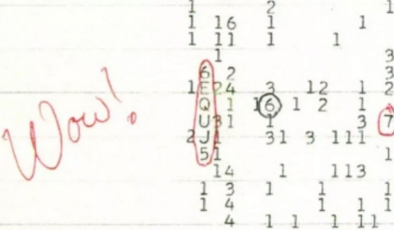 1 2 1
1 16 1 1
1 11 1 1
1 3
6 2 3
1 E 24 3 12 1 2
Q 1 16 1 2 1
U 31 1 3 7
2 J 1 31 3 111
5 1 1
14 1 113
1 3 1 1 1
1 4 1 1 1
4 1 1 1 11
Wow!